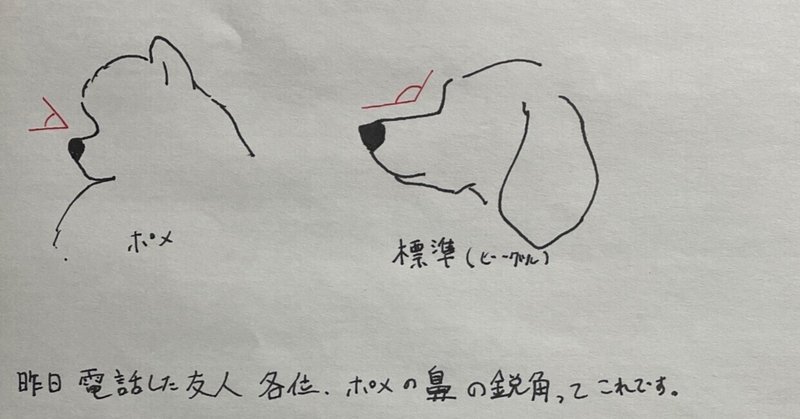 ポメ
標準(ビーグル)
昨日電話した友人各位、ポメの鼻の鋭角ってこれです。